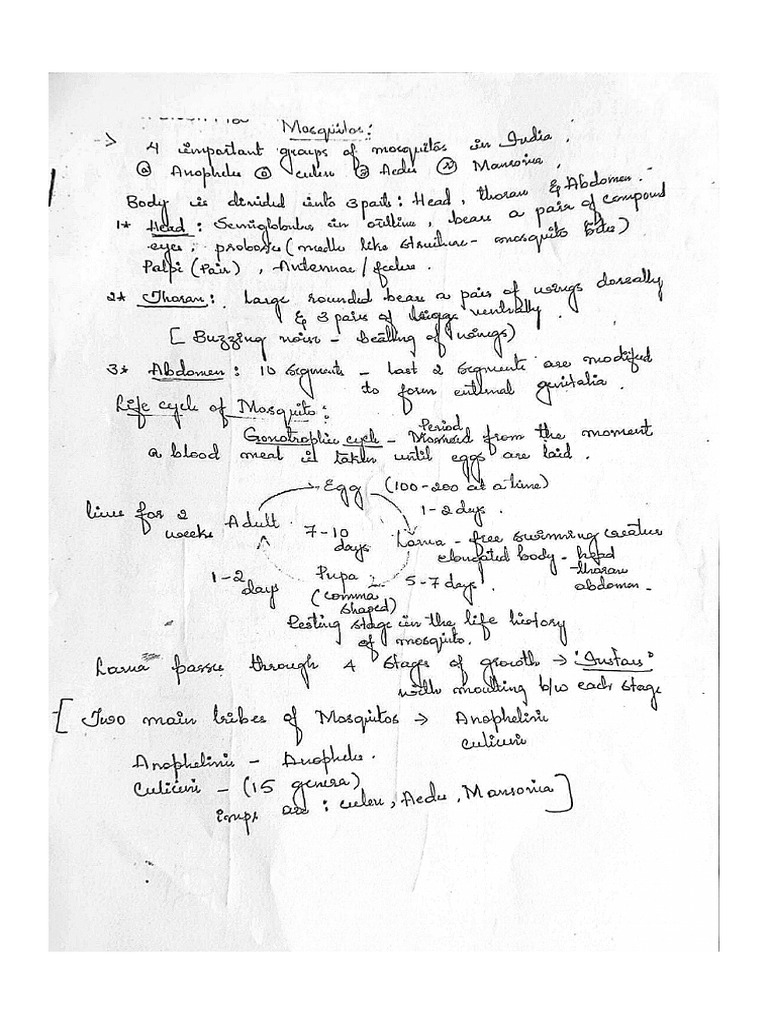 Mosquitos:
→ 4 important groups of mosquitos in India.
ⓐ Anopheles ⓑ culex ③ Aedes ④ Mansonia.
Body is divided into 3 parts: Head, thorax & Abdomen.
1* Head: Semiglobular in outline, bears a pair of compound
eyes, (needle like structure - mosquito bites)
Palpi (Pair), Antennae / feelers.
2* Thorax: Large rounded bears a pair of wings dorsally
& 3 pairs of leggs ventrally.
[Buzzing noise - beating of wings)
3* Abdomen: 10 segments - last 2 segments are modified
to form external genitalia.
Life cycle of Mosquito:
Gonotrophic cycle - Period from the moment
a blood meal is taken until eggs are laid.
Egg (100-200 at a time)
1-2 days.
lives for 2 weeks Adult 7-10 days Larva - free swimming creature
elongated body - head
thorax
abdomen.
1-2 days Pupa (comma shaped) 5-7 days.
Resting stage in the life history
of mosquito.
Larva passes through 4 stages of growth → "Instars"
with moulting b/w each stage
[Two main tribes of Mosquitos → Anophelini
Culicini
Anophelini - Anopheles.
Culicini - (15 genera)
imps are: culex, Aedes, Mansonia]